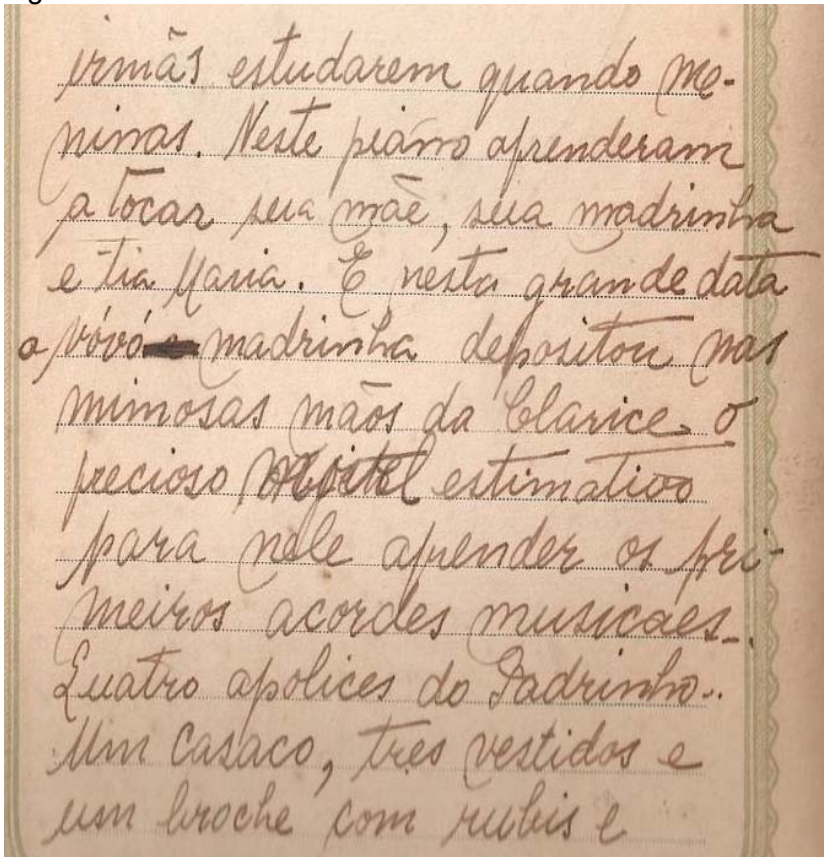 irmãs estudarem quando me-
ninas. Neste piano aprenderam
a tocar sua mãe, sua madrinha
e tia Maria. E nesta grande data
a vóvó madrinha depositou nas
mimosas mãos da Clarice o
precioso estimativo
para nele aprender os pri-
meiros acordes musicaes.
Quatro apolices do Padrinho.
Um casaco, tres vestidos e
um broche com rubis e